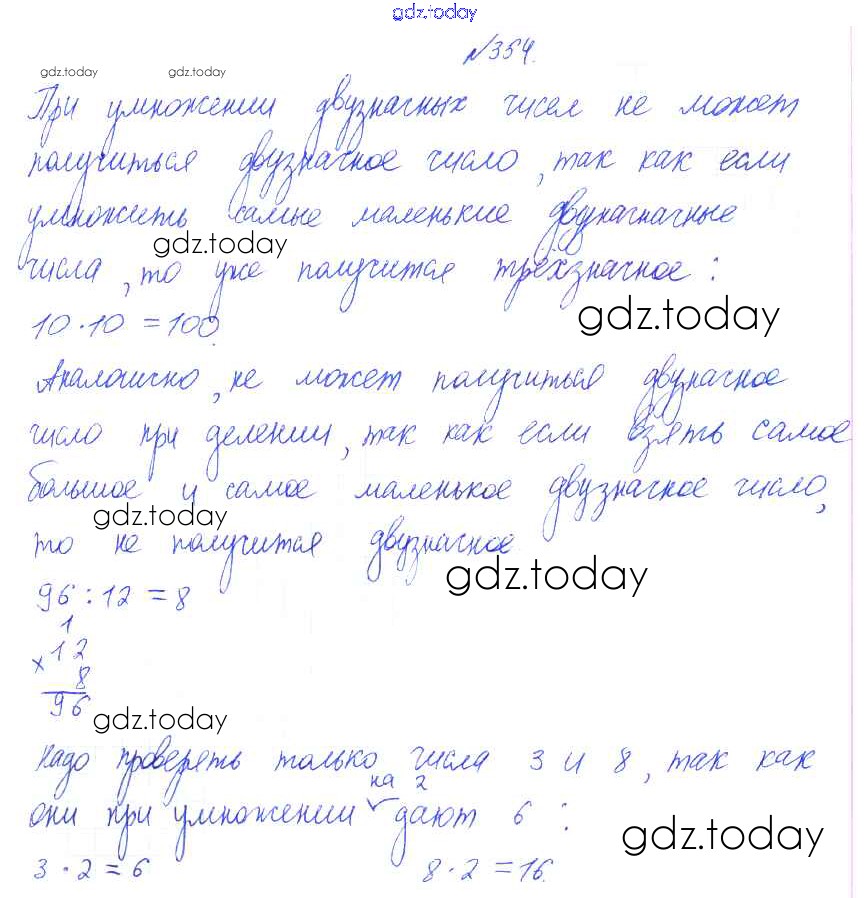 gdz.today
№354.
gdz.today gdz.today
При умножении двузначных чисел не может
получиться двузначное число, так как если
умножить самые маленькие двузначные
gdz.today
числа, то уже получится трёхзначное:
10 · 10 = 100.
gdz.today
Аналогично, не может получиться двузначное
число при делении, так как если взять самое
большое и самое маленькое двузначное число,
gdz.today
то не получится двузначное
gdz.today
96 : 12 = 8
1
× 12
8
96
gdz.today
Надо проверять только числа 3 и 8, так как
на 2
они при умножении дают 6:
gdz.today
3 · 2 = 6 8 · 2 = 16.